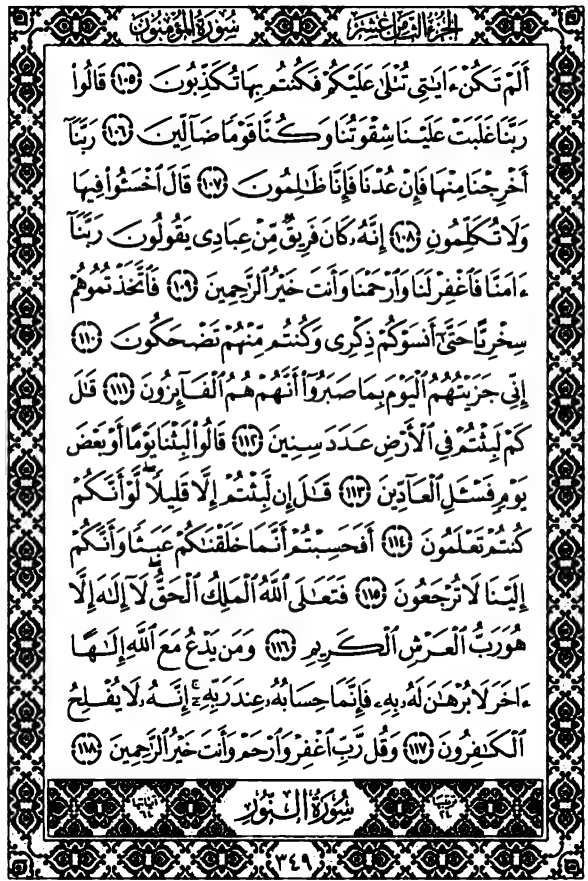 الجزء الثامن عشر سورة المؤمنون
أَلَمْ تَكُنْ ءَايَٰتِى تُتْلَىٰ عَلَيْكُمْ فَكُنتُم بِهَا تُكَذِّبُونَ ﴿١٠٥﴾ قَالُوا۟
رَبَّنَا غَلَبَتْ عَلَيْنَا شِقْوَتُنَا وَكُنَّا قَوْمًا ضَآلِّينَ ﴿١٠٦﴾ رَبَّنَآ
أَخْرِجْنَا مِنْهَا فَإِنْ عُدْنَا فَإِنَّا ظَٰلِمُونَ ﴿١٠٧﴾ قَالَ ٱخْسَـُٔوا۟ فِيهَا
وَلَا تُكَلِّمُونِ ﴿١٠٨﴾ إِنَّهُۥ كَانَ فَرِيقٌ مِّنْ عِبَادِى يَقُولُونَ رَبَّنَآ
ءَامَنَّا فَٱغْفِرْ لَنَا وَٱرْحَمْنَا وَأَنتَ خَيْرُ ٱلرَّٰحِمِينَ ﴿١٠٩﴾ فَٱتَّخَذْتُمُوهُمْ
سِخْرِيًّا حَتَّىٰٓ أَنسَوْكُمْ ذِكْرِى وَكُنتُم مِّنْهُمْ تَضْحَكُونَ ﴿١١٠﴾
إِنِّى جَزَيْتُهُمُ ٱلْيَوْمَ بِمَا صَبَرُوٓا۟ أَنَّهُمْ هُمُ ٱلْفَآئِزُونَ ﴿١١١﴾ قَٰلَ
كَمْ لَبِثْتُمْ فِى ٱلْأَرْضِ عَدَدَ سِنِينَ ﴿١١٢﴾ قَالُوا۟ لَبِثْنَا يَوْمًا أَوْ بَعْضَ
يَوْمٍ فَسْـَٔلِ ٱلْعَآدِّينَ ﴿١١٣﴾ قَٰلَ إِن لَّبِثْتُمْ إِلَّا قَلِيلًا ۖ لَّوْ أَنَّكُمْ
كُنتُمْ تَعْلَمُونَ ﴿١١٤﴾ أَفَحَسِبْتُمْ أَنَّمَا خَلَقْنَٰكُمْ عَبَثًا وَأَنَّكُمْ
إِلَيْنَا لَا تُرْجَعُونَ ﴿١١٥﴾ فَتَعَٰلَى ٱللَّهُ ٱلْمَلِكُ ٱلْحَقُّ ۖ لَآ إِلَٰهَ إِلَّا
هُوَ رَبُّ ٱلْعَرْشِ ٱلْكَرِيمِ ﴿١١٦﴾ وَمَن يَدْعُ مَعَ ٱللَّهِ إِلَٰهًا
ءَاخَرَ لَا بُرْهَٰنَ لَهُۥ بِهِۦ فَإِنَّمَا حِسَابُهُۥ عِندَ رَبِّهِۦٓ ۚ إِنَّهُۥ لَا يُفْلِحُ
ٱلْكَٰفِرُونَ ﴿١١٧﴾ وَقُل رَّبِّ ٱغْفِرْ وَٱرْحَمْ وَأَنتَ خَيْرُ ٱلرَّٰحِمِينَ ﴿١١٨﴾
ترتيبها ٢٤ سُورَةُ النُّورِ آياتها ٦٤
٣٤٩